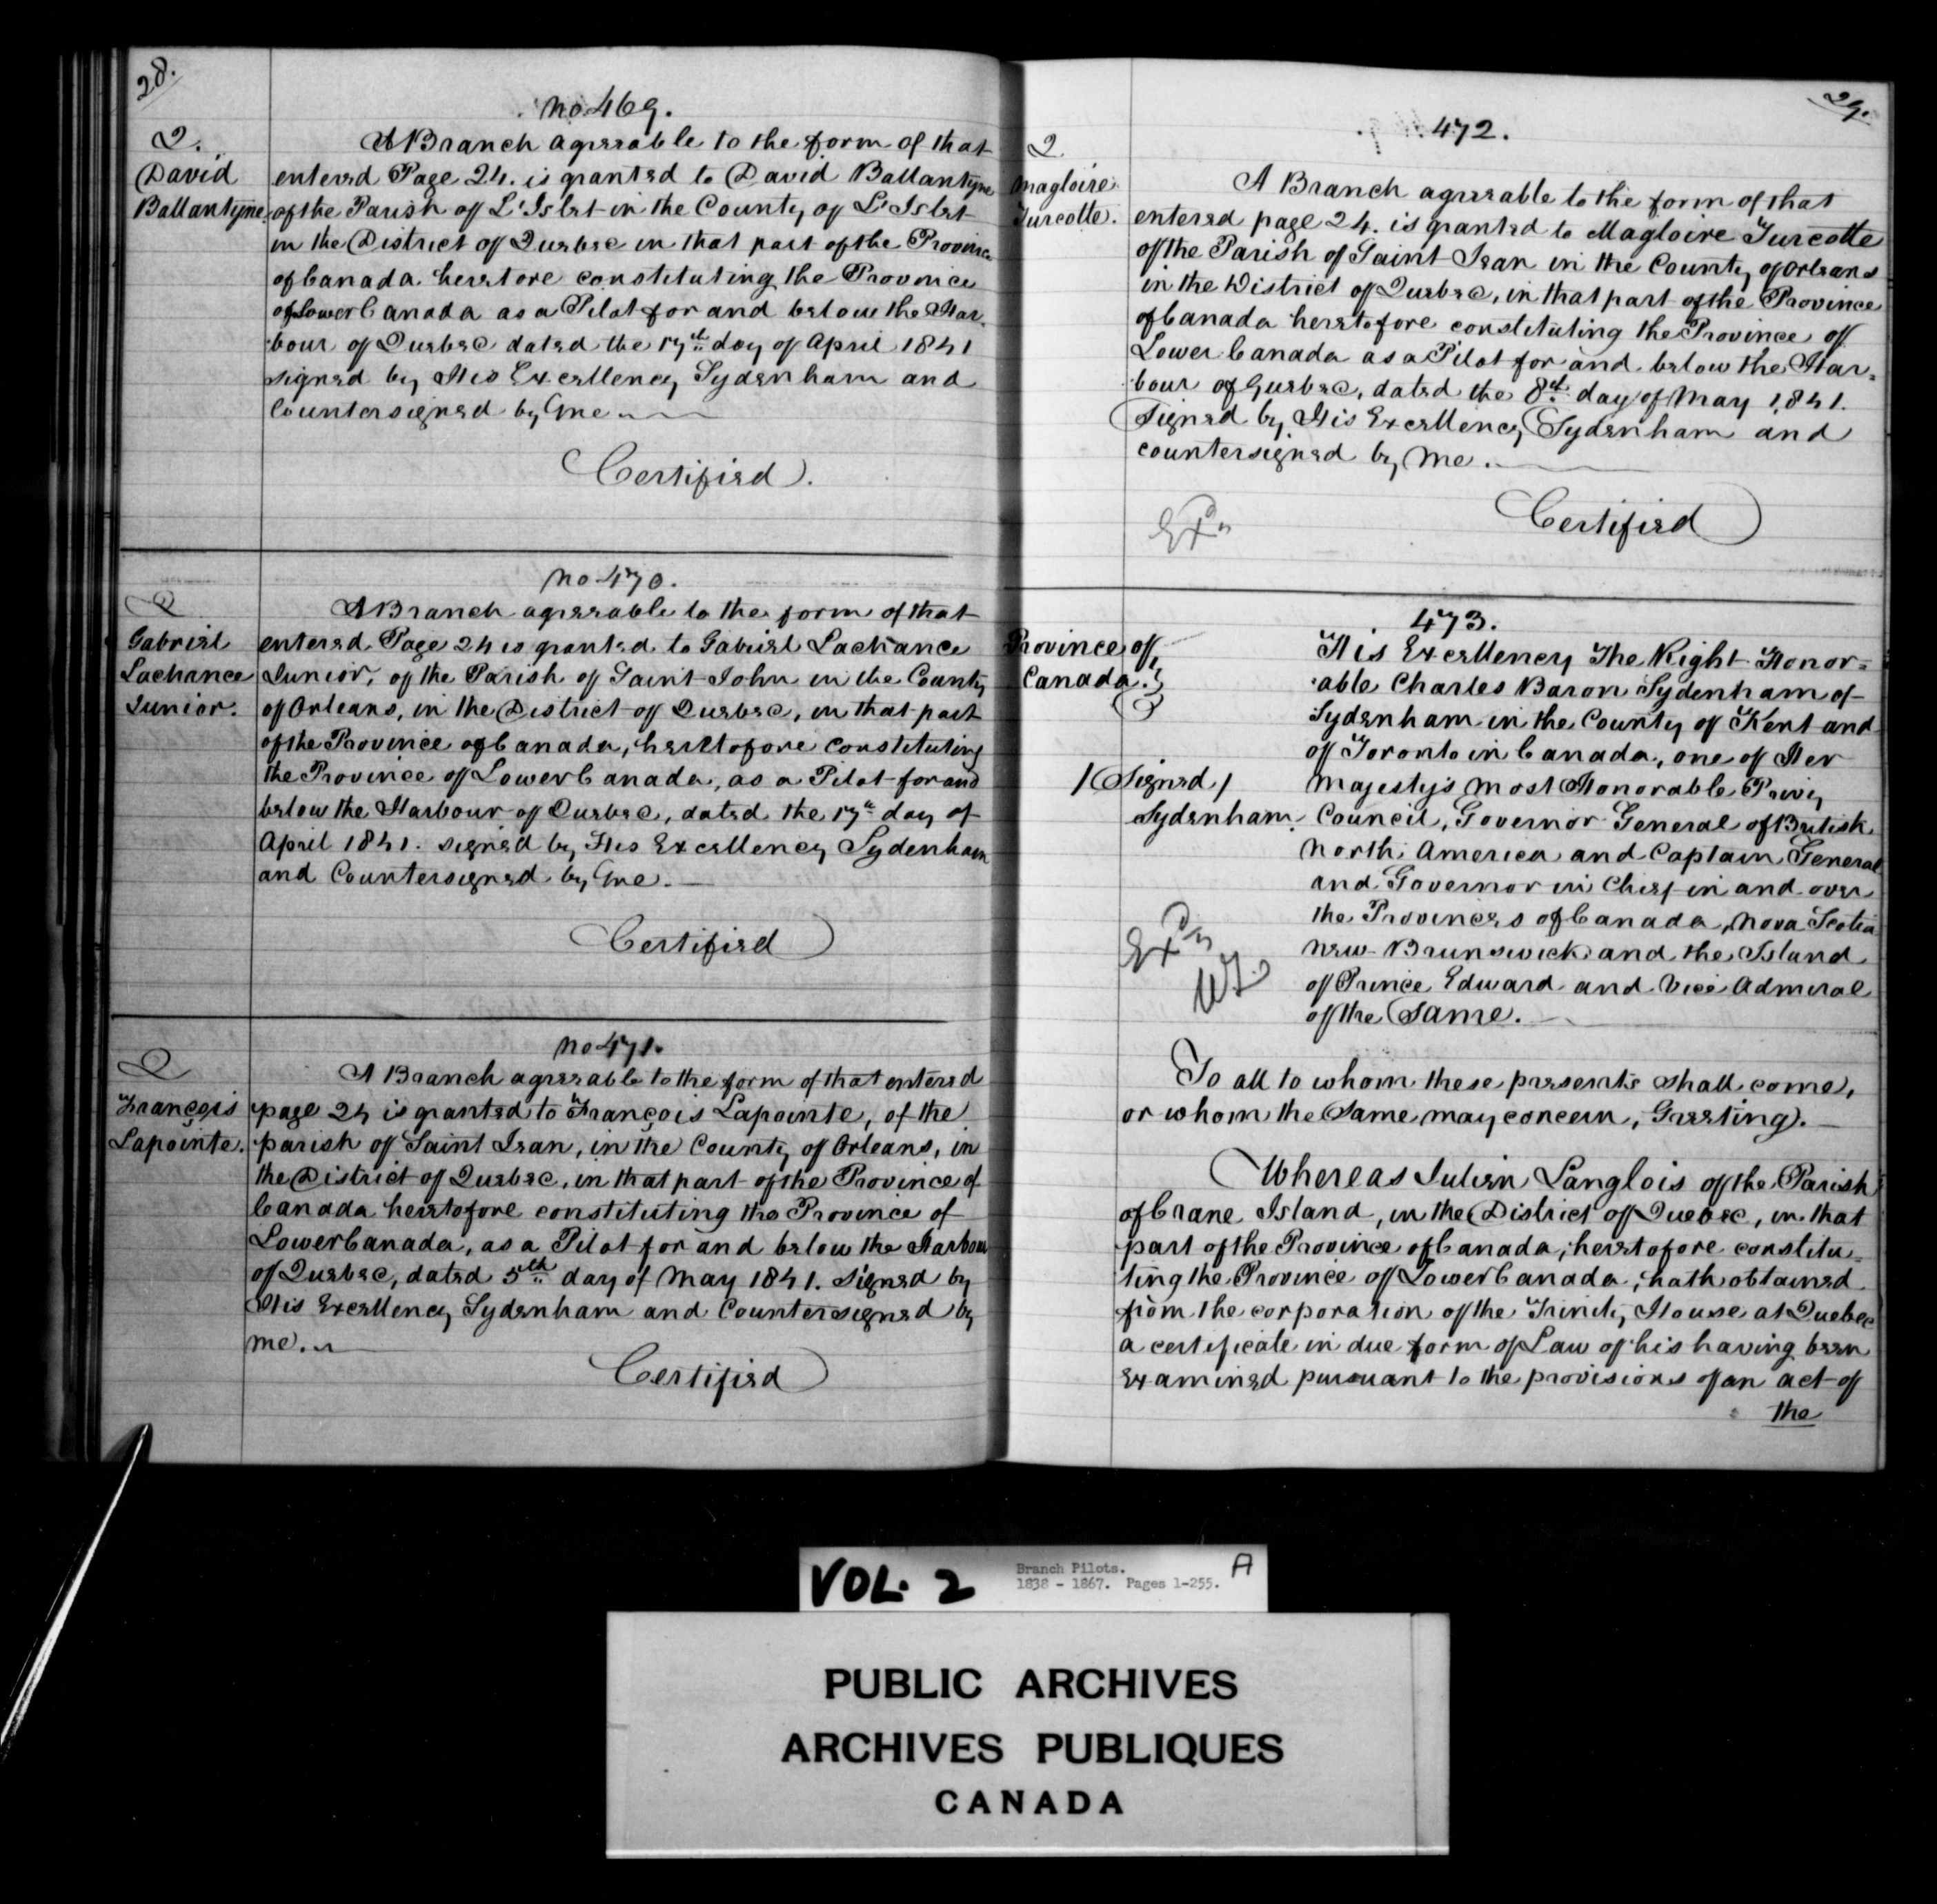 28.
No 469.
Q.
David
Ballantyne.
A Branch agreeable to the form of that
entered Page 24. is granted to David Ballantyne
of the Parish of L'Islet in the County of L'Islet
in the District of Quebec in that part of the Province
of Canada heretore constituting the Province
of Lower Canada as a Pilot for and below the Har-
bour of Quebec dated the 17th day of April 1841
signed by His Excellency Sydenham and
Countersigned by Me
Certified.
No 470.
Q
Gabriel
Lachance
Junior.
A Branch agreeable to the form of that
entered Page 24 is granted to Gabriel Lachance
Junior, of the Parish of Saint John in the County
of Orleans, in the District of Quebec, in that part
of the Province of Canada, heretofore constituting
the Province of Lower Canada, as a Pilot for and
below the Harbour of Quebec, dated the 17th day of
April 1841. signed by His Excellency Sydenham
and Countersigned by Me.
Certified
No 471.
Q
François
Lapointe.
A Branch agreeable to the form of that entered
page 24 is granted to François Lapointe, of the
parish of Saint Jean, in the County of Orleans, in
the District of Quebec, in that part of the Province of
Canada heretofore constituting the Province of
Lower Canada, as a Pilot for and below the Harbour
of Quebec, dated 5th day of May 1841. Signed by
His Excellency Sydenham and Countersigned by
me.
Certified
29.
472.
Q
Magloire
Turcotte.
A Branch agreeable to the form of that
entered page 24. is granted to Magloire Turcotte
of the Parish of Saint Jean in the County of Orleans
in the District of Quebec, in that part of the Province
of Canada heretofore constituting the Province of
Lower Canada as a Pilot for and below the Har=
bour of Quebec, dated the 8th day of May 1841.
Signed by His Excellency Sydenham and
countersigned by Me.
Certified
Exn
473.
Province of
Canada.
/Signed/
Sydenham.
His Excellency The Right Honor=
able Charles Baron Sydenham of
Sydenham in the County of Kent and
of Toronto in Canada, one of Her
Majesty's Most Honorable Privy
Council, Governor General of British
North America and Captain General
and Governor in Chief in and over
the Provinces of Canada, Nova Scotia
New Brunswick and the Island
of Prince Edward and Vice Admiral
of the Same.
Exn
To all to whom these presents shall come,
or whom the Same may concern, Greeting.
Whereas Julien Langlois of the Parish
of Crane Island, in the District of Quebec, in that
part of the Province of Canada, heretofore constitu=
ting the Province of Lower Canada, hath obtained
from the corporation of the Trinity House at Quebec
a certificate in due form of Law of his having been
Examined pursuant to the provisions of an act of
the
VOL. 2
Branch Pilots.
1838 - 1867. Pages 1-255.
A
PUBLIC ARCHIVES
ARCHIVES PUBLIQUES
CANADA